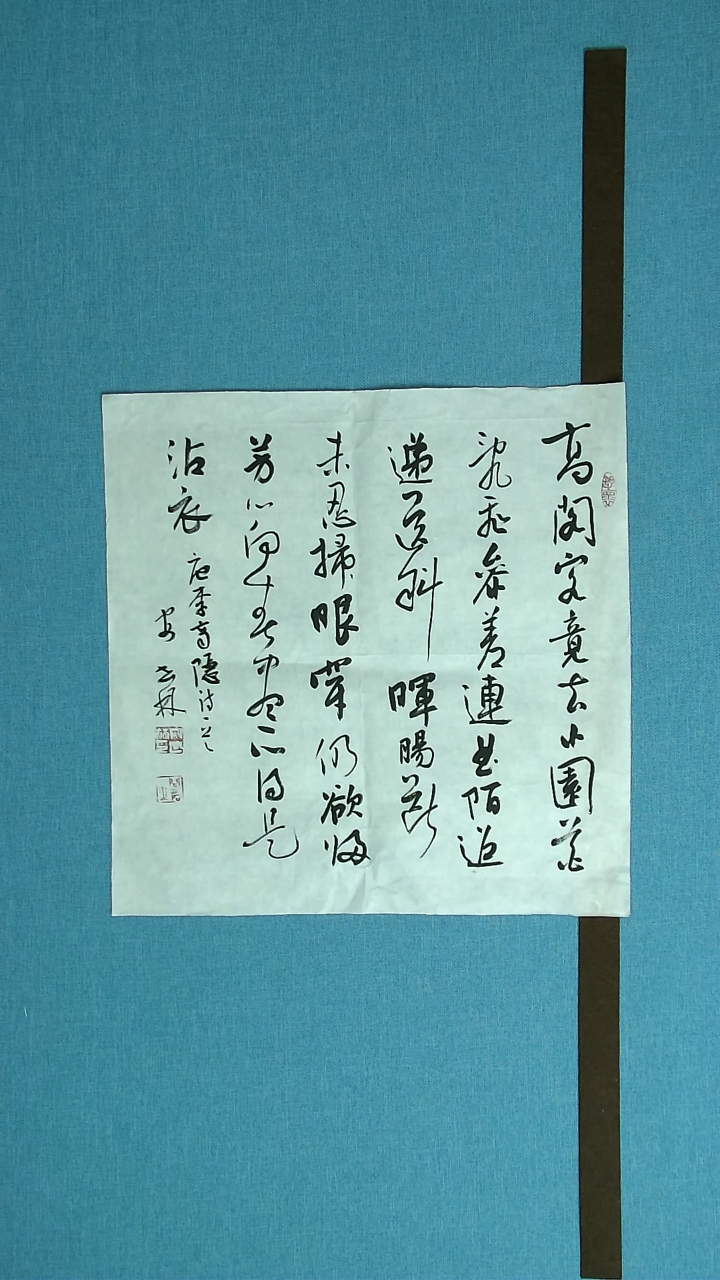 高閣客竟去小園花
亂飛參差連曲陌迢
遞送斜暉腸斷
未忍掃眼穿仍欲歸
芳心向春盡所得是
沾衣
唐李商隱詩一首